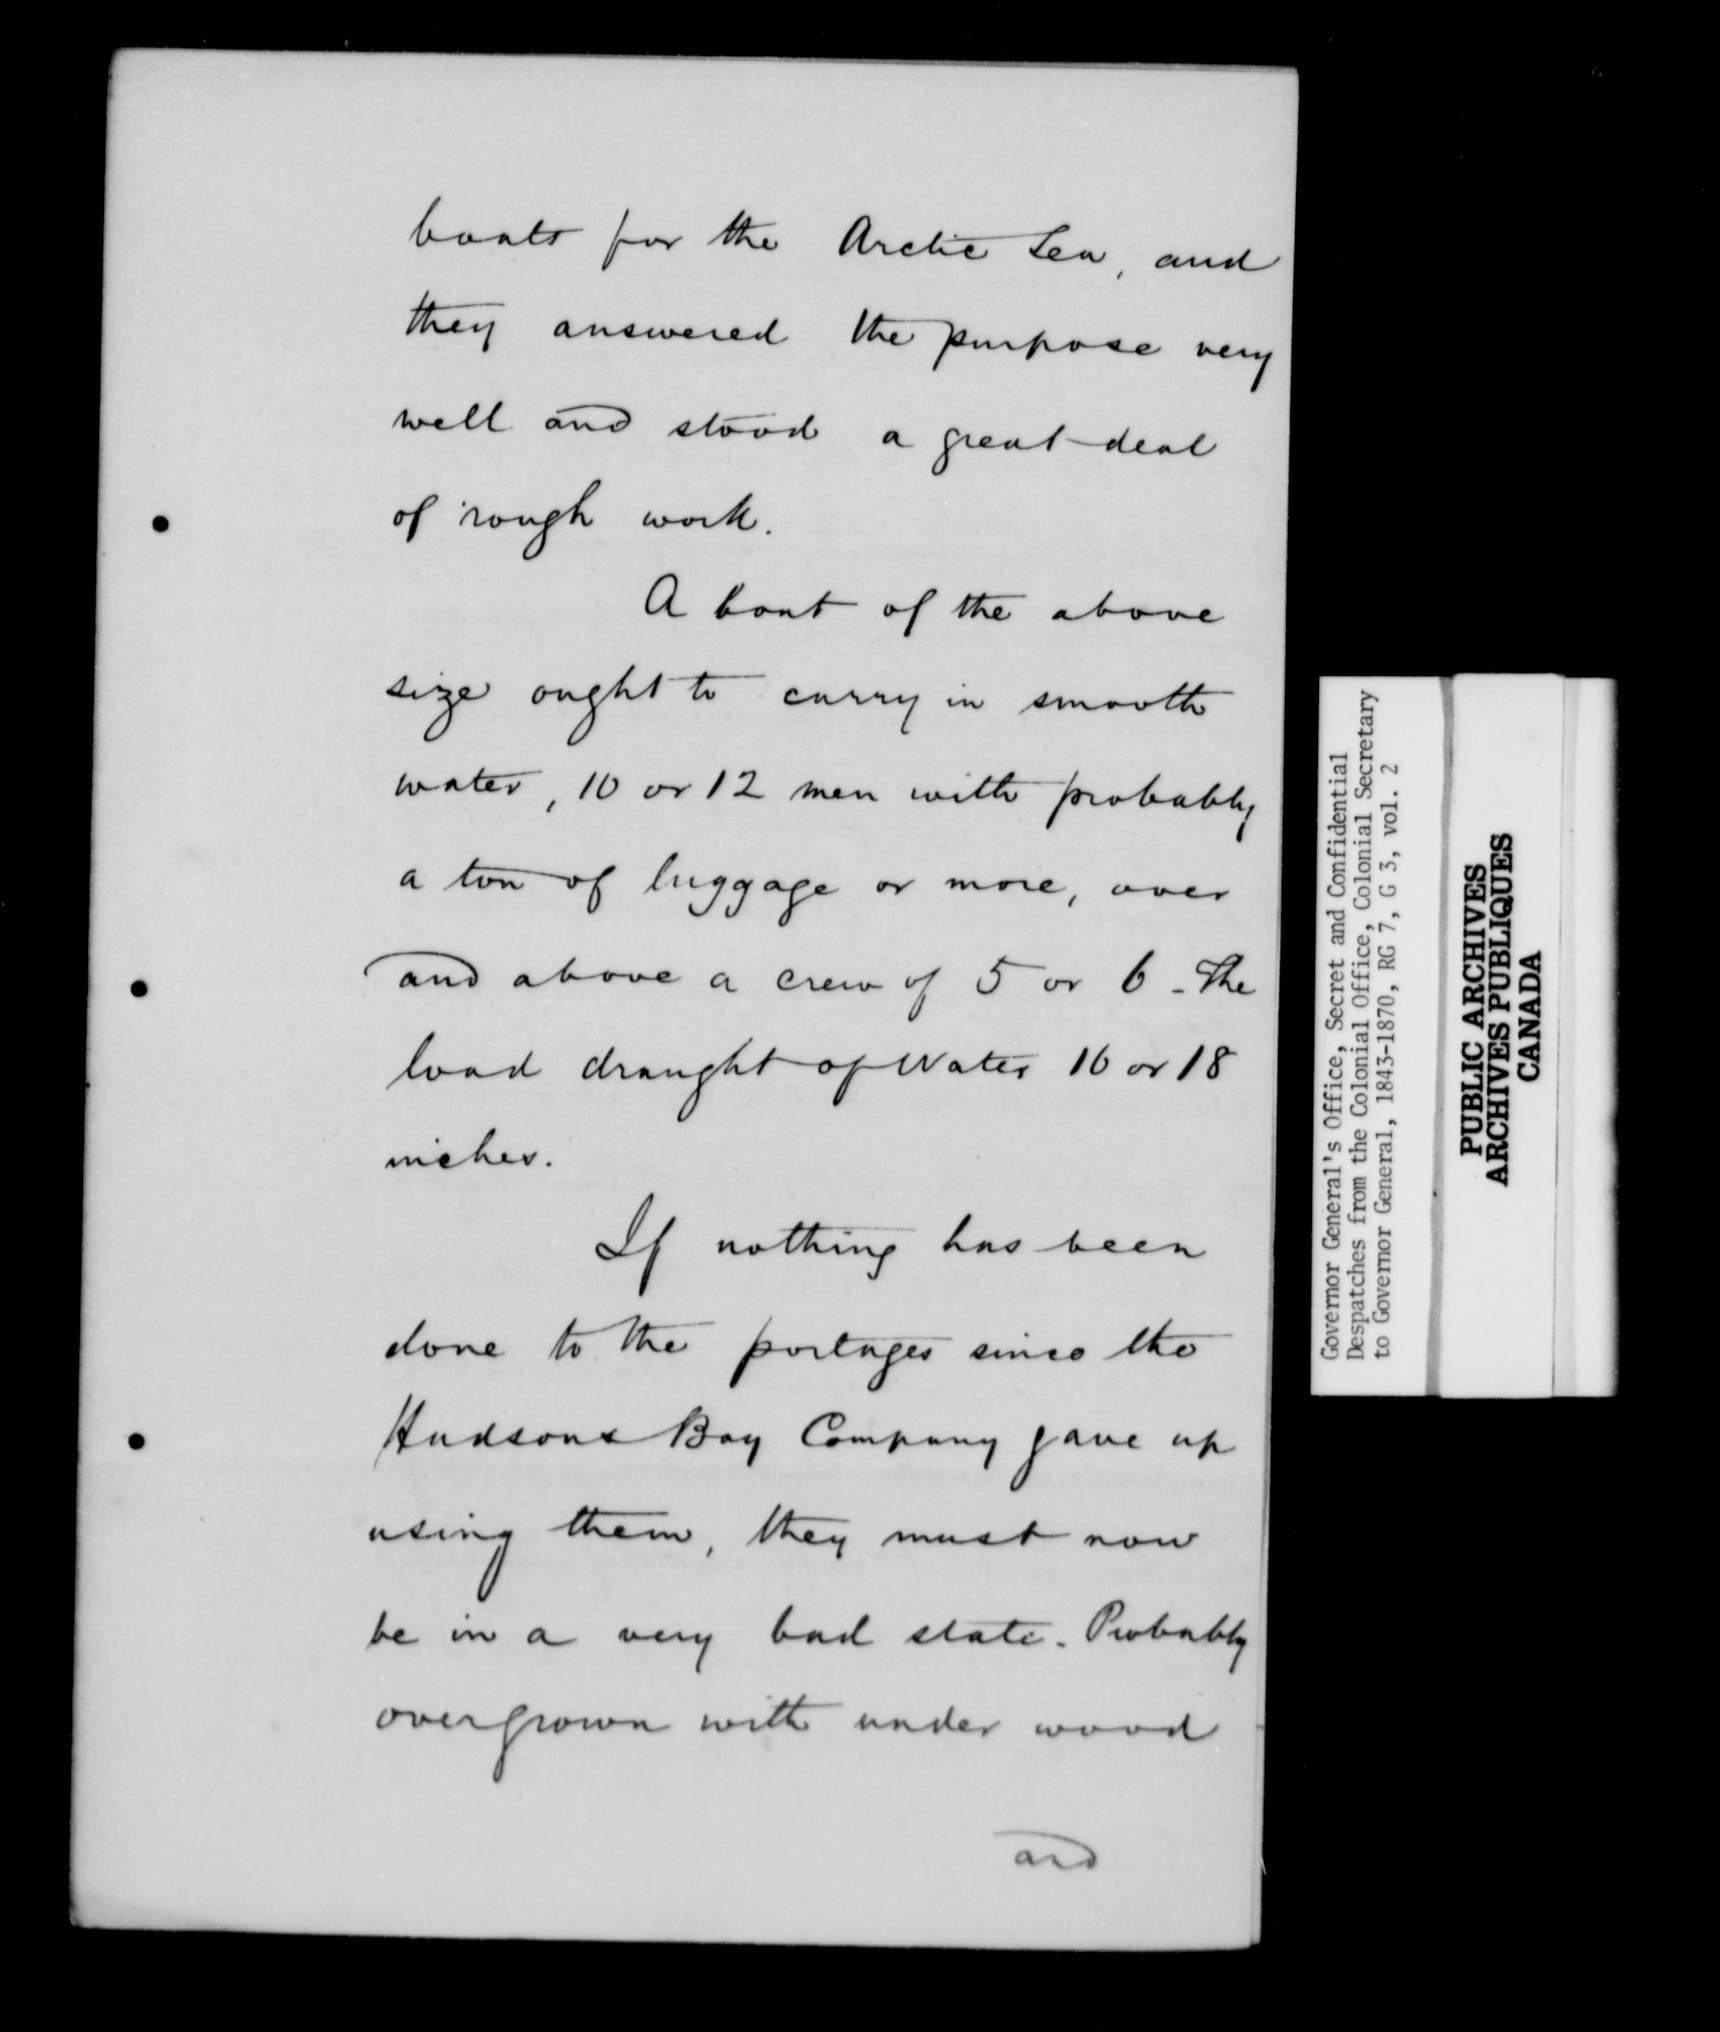 boats for the Arctic Sea, and
they answered the purpose very
well and stood a great deal
of rough work.
A boat of the above
size ought to carry in smooth
water, 10 or 12 men with probably
a ton of luggage or more, over
and above a crew of 5 or 6 - The
load draught of Water 16 or 18
inches.
If nothing has been
done to the portages since the
Hudsons Bay Company gave up
using them, they must now
be in a very bad state. Probably
overgrown with under wood
and
Governor General's Office, Secret and Confidential
Despatches from the Colonial Office, Colonial Secretary
to Governor General, 1843-1870, RG 7, G 3, vol. 2
PUBLIC ARCHIVES
ARCHIVES PUBLIQUES
CANADA